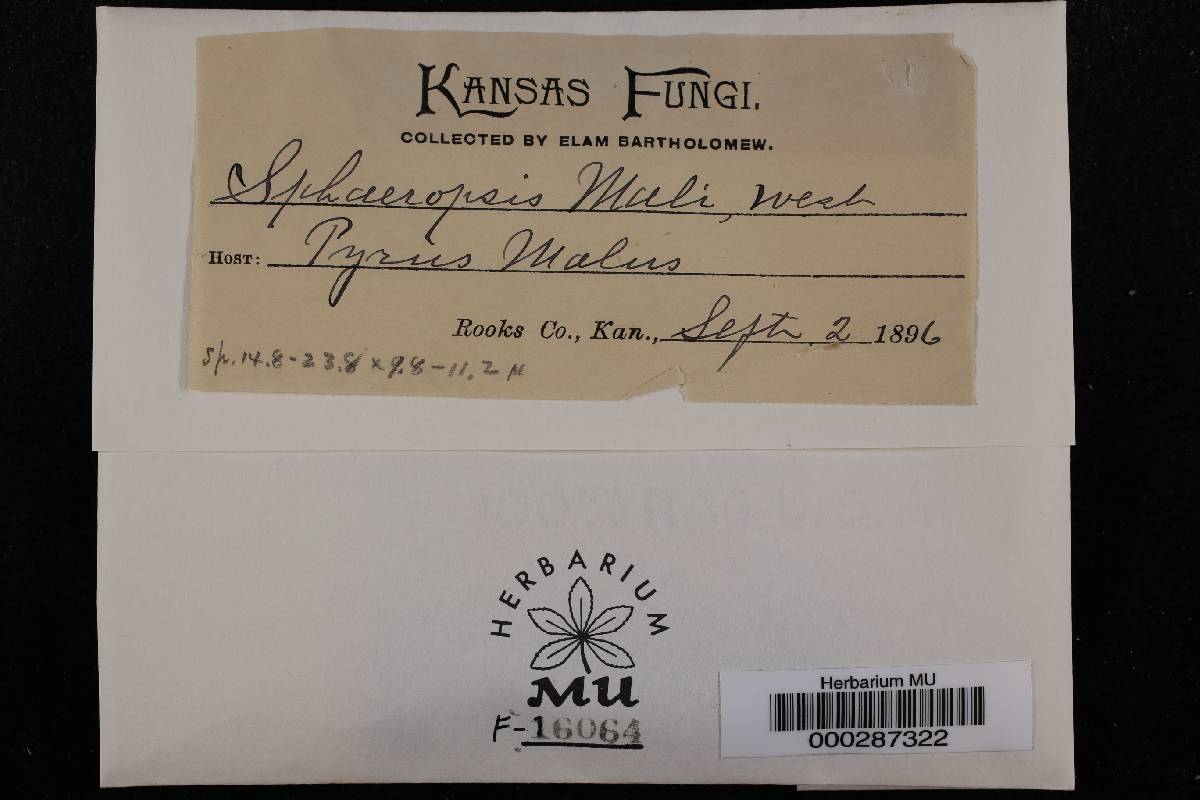 KANSAS FUNGI.
COLLECTED BY ELAM BARTHOLOMEW.
Sphaeropsis Mali, West
HOST: Pyrus Malus
Rooks Co., Kan., Sept 2 1896
Sp. 14.8-23.8 x 9.8-11.2 µ
HERBARIUM
MU
F-16064
Herbarium MU
000287322